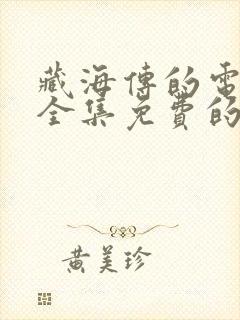 藏海傳的電
全集免費的
黄美珍